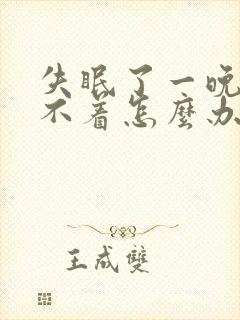 失眠了一晚
不着怎麼办
王成雙